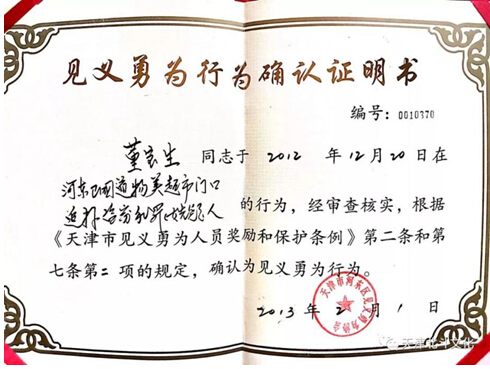 见义勇为行为确认证明书
编号：0010370
董良生 同志于 2012 年 12 月 20 日在
河东 道物美超市门口
追 人 的行为，经审查核实，根据
《天津市见义勇为人员奖励和保护条例》第二条和第
七条第二 项的规定，确认为见义勇为行为。
天津市河东区见义勇为协会
2013 年 2 月 1 日
天津北斗文化